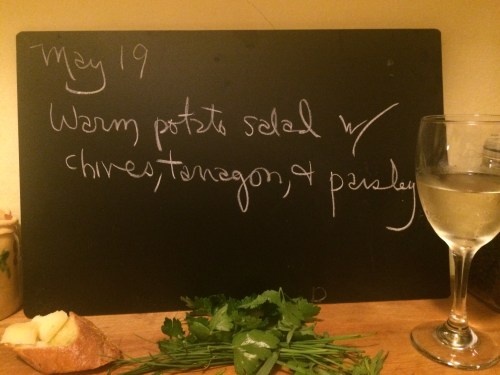 May 19
Warm potato salad w/
chives, tarragon, & parsley